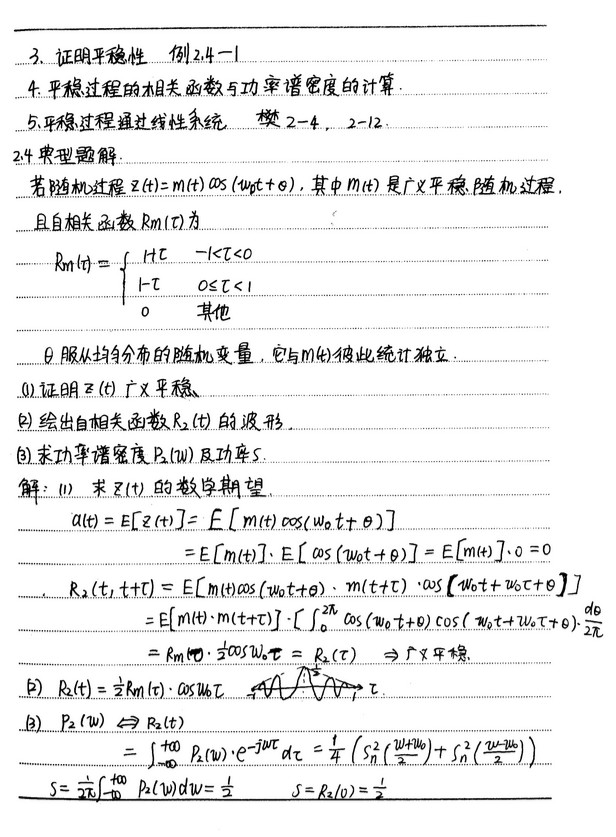 3. 证明平稳性 例2.4-1
4. 平稳过程的相关函数与功率谱密度的计算.
5. 平稳过程通过线性系统 樊 2-4, 2-12.
2.4 典型题解.
若随机过程 z(t)=m(t)cos(w₀t+θ), 其中 m(t) 是广义平稳随机过程,
且自相关函数 Rm(τ)为
Rm(τ) = { 1+τ -1<τ<0
1-τ 0≤τ<1
0 其他
θ 服从均匀分布的随机变量, 它与m(t)彼此统计独立.
(1) 证明 z(t) 广义平稳
(2) 绘出自相关函数 R₂(t) 的波形.
(3) 求功率谱密度 P₂(w) 及功率S.
解: (1) 求 z(t) 的数学期望.
a(t) = E[z(t)] = E[m(t)cos(w₀t+θ)]
= E[m(t)]·E[cos(w₀t+θ)] = E[m(t)]·0 = 0
R₂(t, t+τ) = E[m(t)cos(w₀t+θ)·m(t+τ)·cos[w₀t+w₀τ+θ)]
= E[m(t)·m(t+τ)]·[∫₀^2π cos(w₀t+θ)cos(w₀t+w₀τ+θ)·dθ/2π
= Rm(τ)·½cosw₀τ = R₂(τ) ⇒ 广义平稳.
(2) R₂(t) = ½Rm(τ)·cosw₀τ ½ τ
(3) P₂(w) ⇔ R₂(t)
= ∫_-∞^+∞ P₂(w)·e^-jwτ dτ = 1/4 (Sn²((w+w₀)/2) + Sn²((w-w₀)/2))
S = 1/2π ∫_-∞^+∞ P₂(w)dw = ½ S = R₂(0) = ½